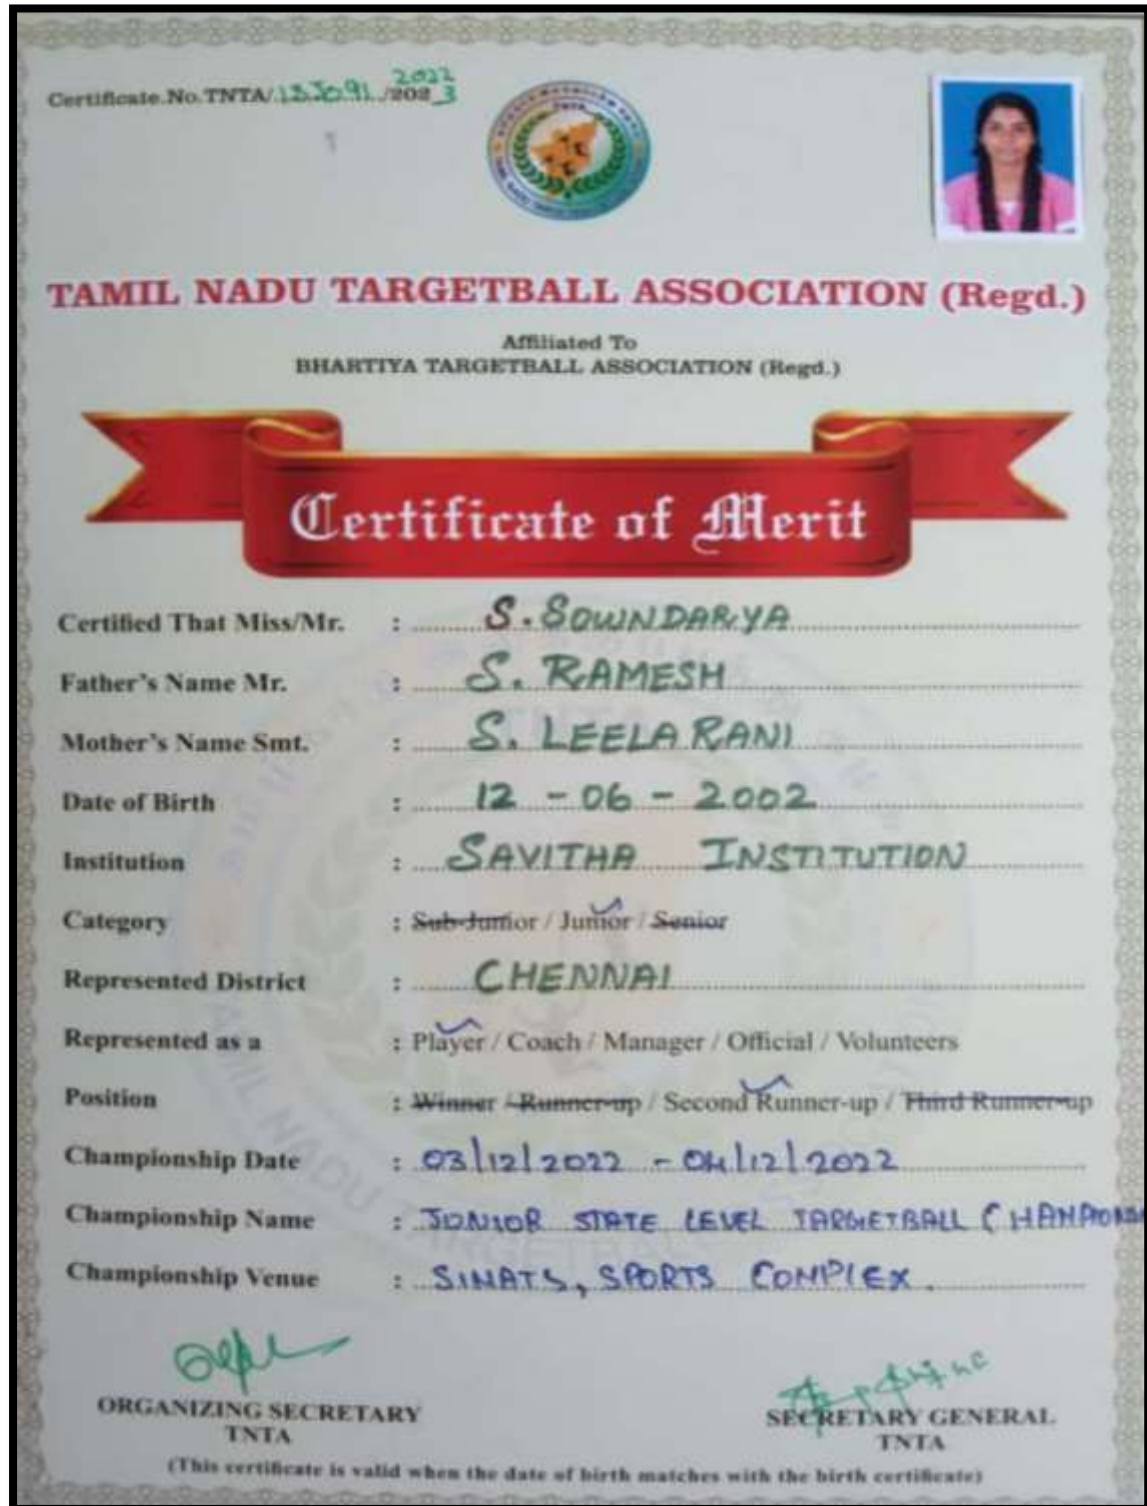 Certificate.No.TNTA/ /202 3
2022
TNTA
TAMIL NADU TARGETBALL ASSOCIATION (Regd.)
Affiliated To
BHARTIYA TARGETBALL ASSOCIATION (Regd.)
Certificate of Merit
Certified That Miss/Mr. : S. SOWNDARYA
Father's Name Mr. : S. RAMESH
Mother's Name Smt. : S. LEELA RANI
Date of Birth : 12 - 06 - 2002
Institution : SAVITHA INSTITUTION
Category : Sub-Junior / Junior / Senior
Represented District : CHENNAI
Represented as a : Player / Coach / Manager / Official / Volunteers
Position : Winner / Runner-up / Second Runner-up / Third Runner-up
Championship Date : 03/12/2022 - 04/12/2022
Championship Name : JUNIOR STATE LEVEL TARGETBALL
Championship Venue : SIMATS, SPORTS COMPLEX.
ORGANIZING SECRETARY
TNTA
SECRETARY GENERAL
TNTA
(This certificate is valid when the date of birth matches with the birth certificate)